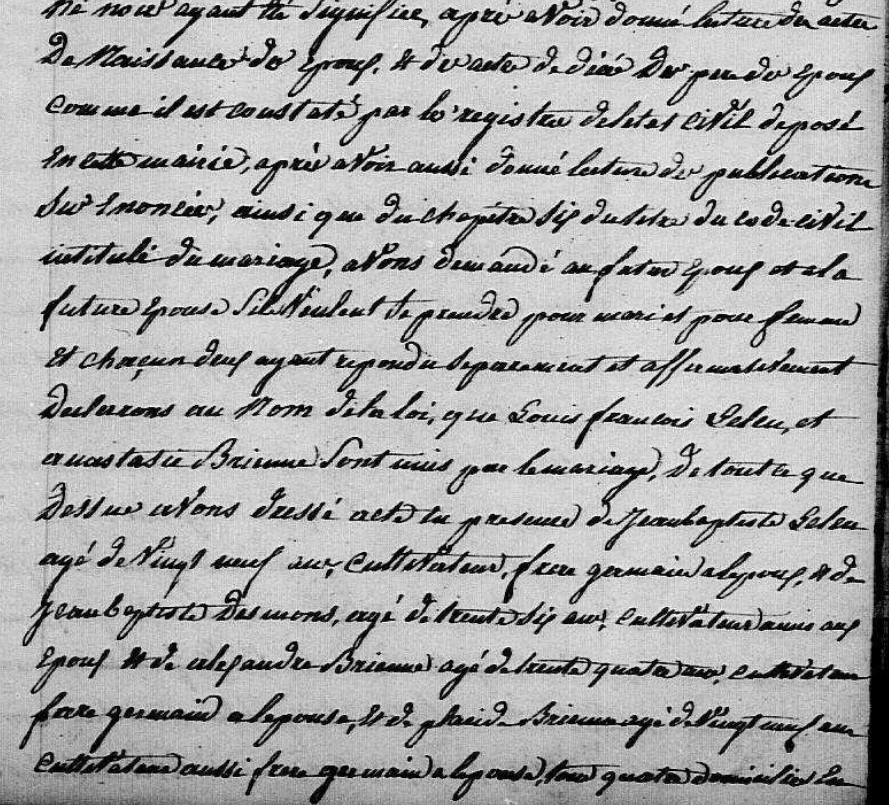 ne nous ayant été signifiée, après avoir donné lecture des actes
De Naissances des Epoux, et des actes de décé Des peres des Epoux
comme il est constaté par les registres deletat civil deposé
En cette mairie, après avoir aussi donné lecture des publications
sus Enoncées, ainsi que du chapitre six du titre du code civil
intitulé du mariage, avons demandé au futur Epoux et a la
future Epouse sils veulent se prendre pour mari et pour femme
Et chacun deux ayant repondu separement et affirmativement
Declarons au Nom de la loi, que Louis francois Leleu, et
anastasie Brienne sont unis par le mariage, De tout ce que
Dessus avons dressé acte en presence de Jeanbaptiste Leleu
agé de Vingt neuf ans, Cultivateur, frere germain alepoux, et de
Jeanbaptiste Desmons, agé de trente six ans, cultivateur amis aux
Epoux et de alexandre Brienne agé de trente quatre ans, cultivateur
frere germain a lepouse, et de placide Brienne agé de Vingt neuf ans
Cultivateur aussi frere germain a lepouse, tous quatre domiciliés En